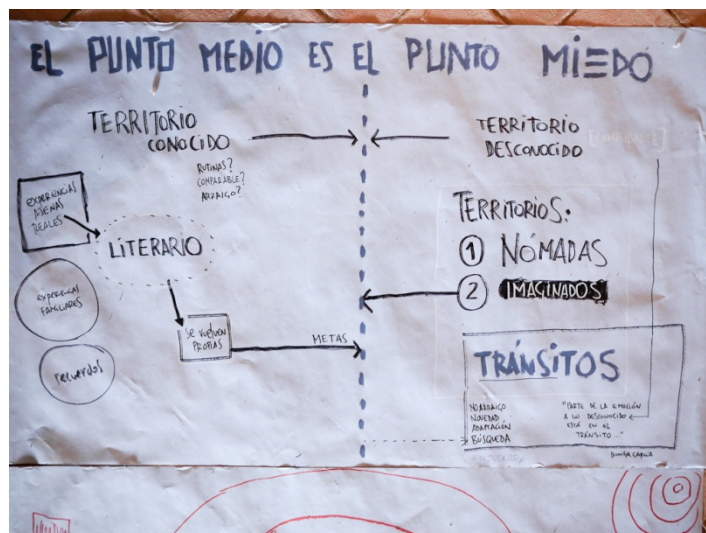 EL PUNTO MEDIO ES EL PUNTO MIEDO
TERRITORIO
CONOCIDO
RUTINAS?
COMPARABLE?
ARRAIGO?
EXPERIENCIAS
AJENAS
REALES
LITERARIO
EXPERIENCIAS
FAMILIARES
recuerdos
SE VUELVEN
PROPIAS
METAS
TERRITORIO
DESCONOCIDO
TERRITORIOS:
1 NÓMADAS
2 IMAGINADOS
TRÁNSITOS
NO ARRAIGO
NOVEDAD
ADAPTACIÓN
BÚSQUEDA
"PARTE DE LA EMOCIÓN
A LO DESCONOCIDO
ESTÁ EN EL
TRÁNSITO..."